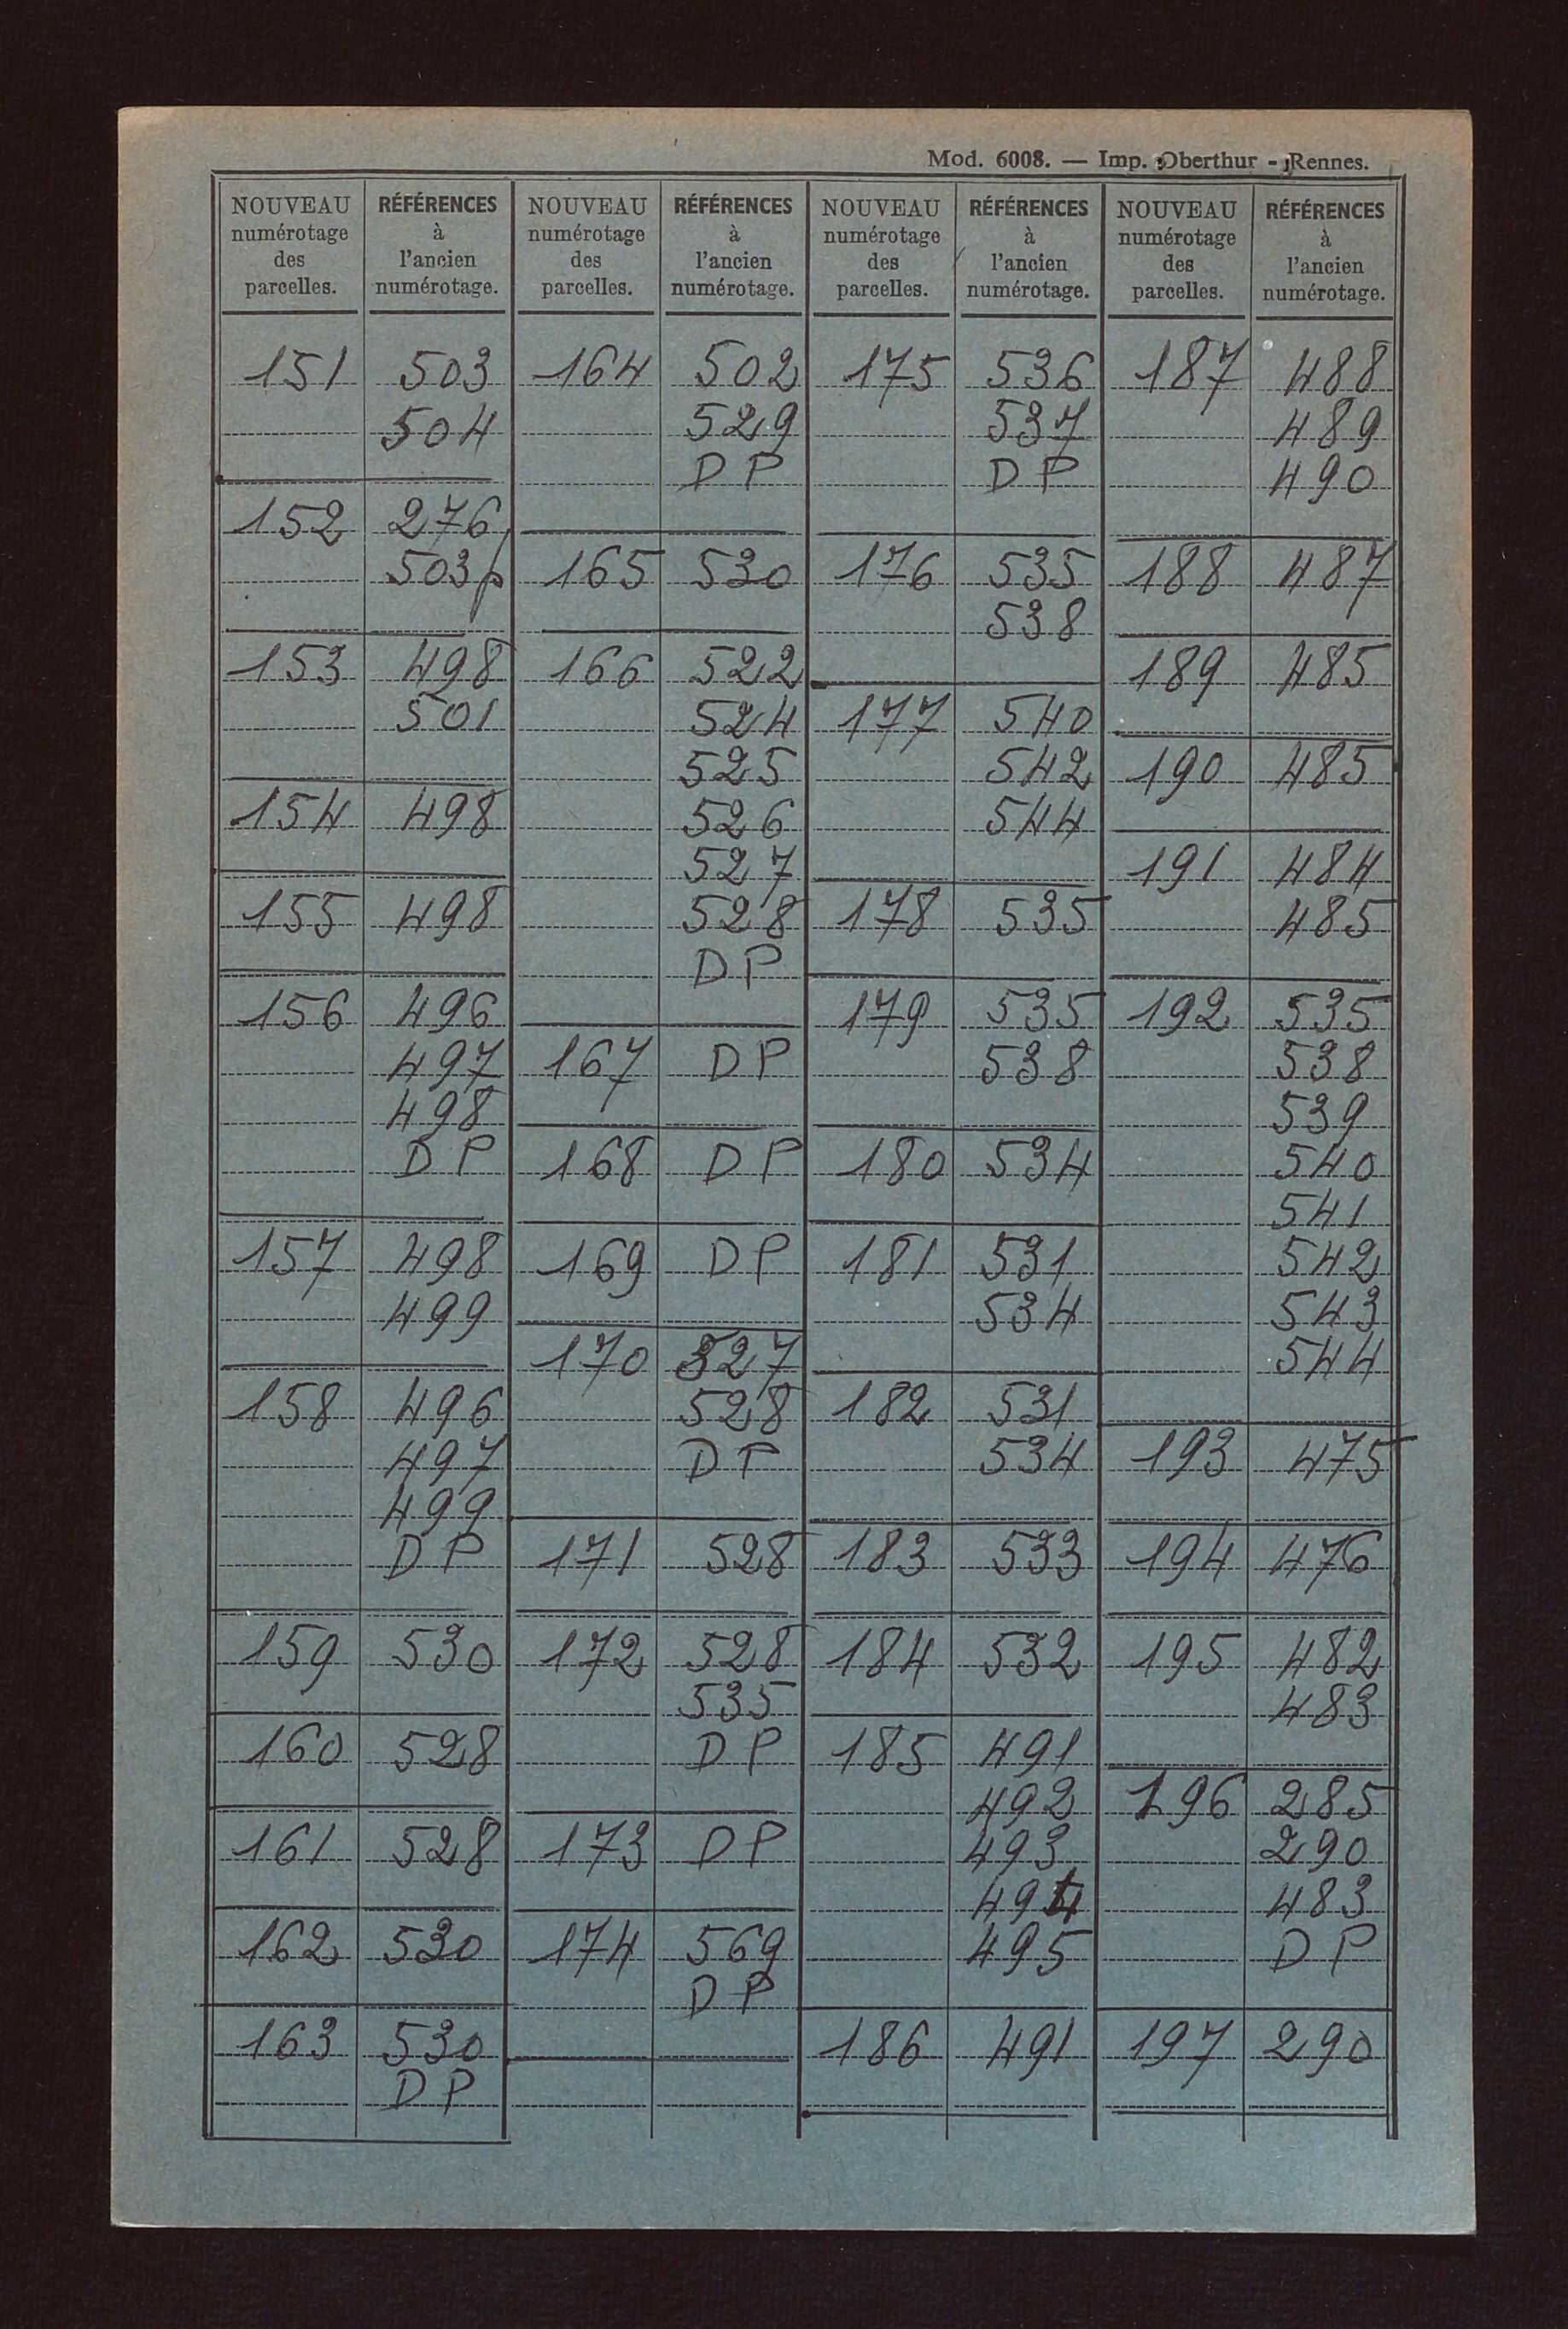 Mod. 6008. — Imp. Oberthur - Rennes.
NOUVEAU numérotage des parcelles. | RÉFÉRENCES à l'ancien numérotage. | NOUVEAU numérotage des parcelles. | RÉFÉRENCES à l'ancien numérotage. | NOUVEAU numérotage des parcelles. | RÉFÉRENCES à l'ancien numérotage. | NOUVEAU numérotage des parcelles. | RÉFÉRENCES à l'ancien numérotage.
151 503
504
152 276
503p
153 498
501
154 498
155 498
156 496
497
498
DP
157 498
499
158 496
497
499
DP
159 530
160 528
161 528
162 530
163 530
DP
164 502
529
DP
165 530
166 522
524
525
526
527
528
DP
167 DP
168 DP
169 DP
170 527
528
DP
171 528
172 528
535
DP
173 DP
174 569
DP
175 536
537
DP
176 535
538
177 540
542
544
178 535
179 535
538
180 534
181 531
534
182 531
534
183 533
184 532
185 491
492
493
494
495
186 491
187 488
489
490
188 487
189 485
190 485
191 484
485
192 535
538
539
540
541
542
543
544
193 475
194 476
195 482
483
196 285
290
483
DP
197 290